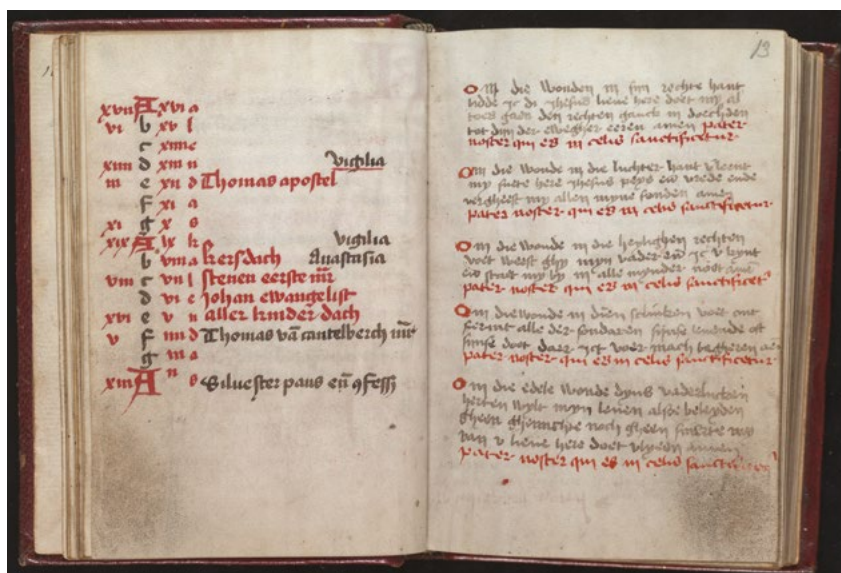 xvii A xvi a
vi b xv l
c xiiii e
xiiii d xiii n vigilia
iii e xii d Thomas apostel
f xi a
xi g x s
xix A ix k vigilia
b viii a kersdach Anastasia
viii c vii l steuen eerste mr
d vi e Johan ewangelist
xvi e v n aller kinder dach
v f iiii d Thomas va cantelberch mr
g iii a
xiii A ii s Siluester paus en ɔfess
13
O In die wonden in sijn rechte hant
ic di ihesus lieue here doet my al
gaen den rechten ganck in doechden
tot dijnder ewegher eeren amen pater
noster qui es in celis sanctificetur
O In die wonde in die luchter hant
my suete here ihesus peys en vrede ende
vergheeft my allen myne sonden amen
pater noster qui es in celis sanctificetur
O in die wonde in die heylighen rechten
voet weest ghy myn vader en ic v kynt
en staet my by in alle mynder noot
pater noster qui es in celis sanctificet
O in die wonde in slincken voet
alle der sondaren
doet daer ict voer mach begheren
pater noster qui es in celis sanctificetur
O in die edele wonde dyns vaderlicken
herten wylt myn leuen alsoe beleyden
gheen noch gheen
van v lieue here doet vlyeden amen
pater noster qui es in celis